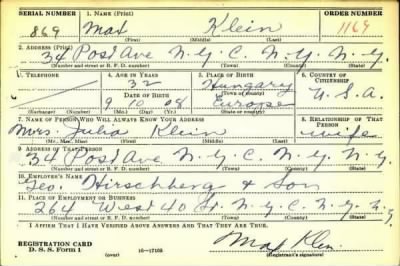 SERIAL NUMBER 1. NAME (Print) ORDER NUMBER
869 Max Klein 1169
(First) (Middle) (Last)
2. ADDRESS (Print)
34 Post Ave N.Y.C. N.Y. N.Y.
(Number and street or R. F. D. number) (Town) (County) (State)
3. TELEPHONE 4. AGE IN YEARS 5. PLACE OF BIRTH 6. COUNTRY OF CITIZENSHIP
32 Hungary
DATE OF BIRTH (Town or county) U.S.A.
9 10 08 Europe
(Exchange) (Number) (Mo.) (Day) (Yr.) (State or country)
7. NAME OF PERSON WHO WILL ALWAYS KNOW YOUR ADDRESS 8. RELATIONSHIP OF THAT PERSON
Mrs. Julia Klein wife
(Mr., Mrs., Miss) (First) (Middle) (Last)
9. ADDRESS OF THAT PERSON
34 Post Ave N.Y.C. N.Y. N.Y.
(Number and street or R. F. D. number) (Town) (County) (State)
10. EMPLOYER'S NAME
Geo. Hirschberg & Son
11. PLACE OF EMPLOYMENT OR BUSINESS
264 West 40 St. N.Y.C. N.Y. N.Y.
(Number and street or R. F. D. number) (Town) (County) (State)
I AFFIRM THAT I HAVE VERIFIED ABOVE ANSWERS AND THAT THEY ARE TRUE.
REGISTRATION CARD
D. S. S. Form 1 (over) 16—17105 Max Klein
(Registrant's signature)